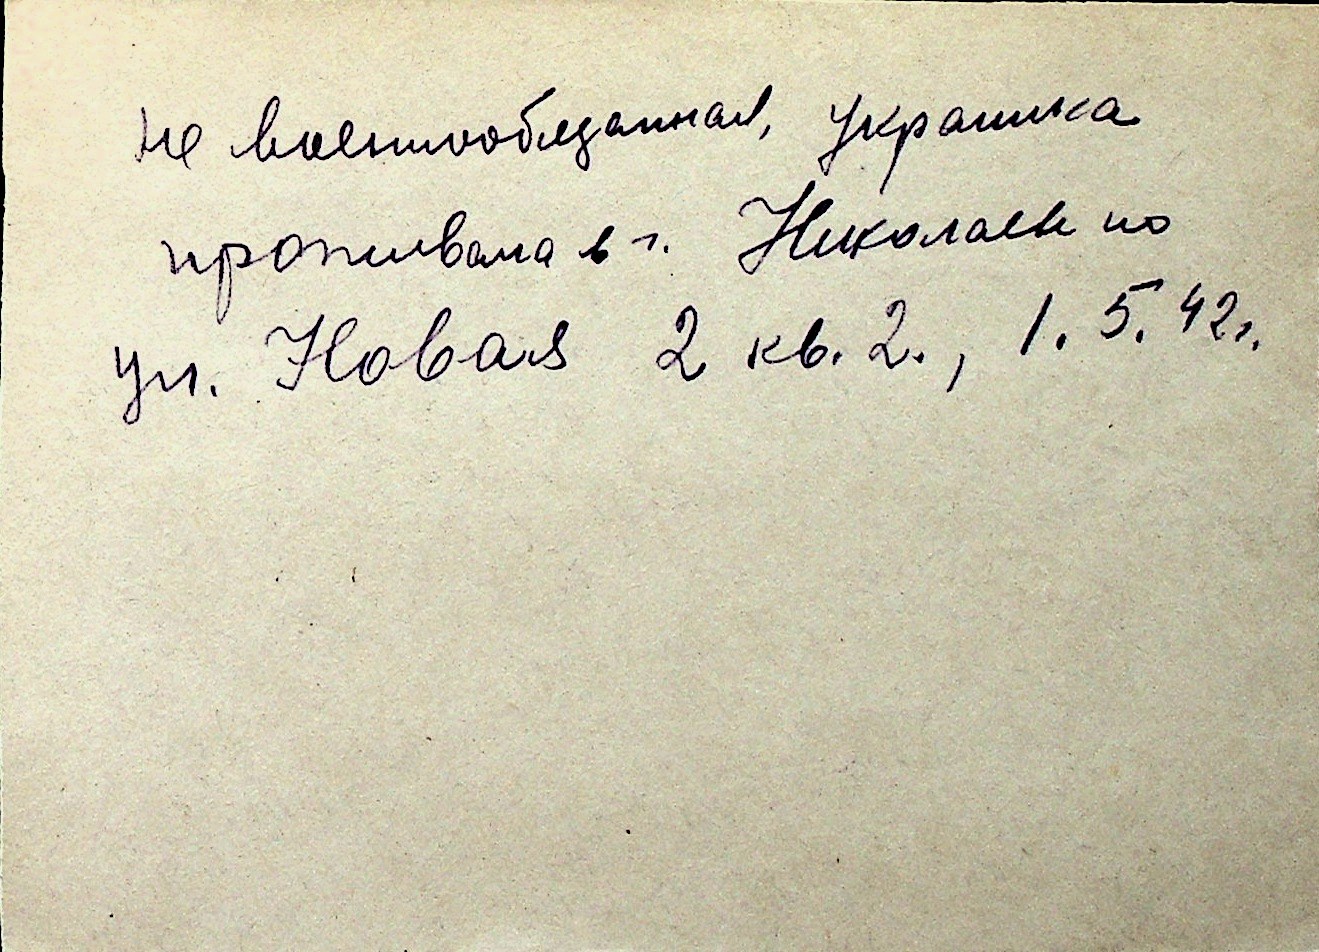 не военнообязанная, украинка
проживала в г. Николаев по
ул. Новая 2 кв. 2., 1. 5. 42 г.